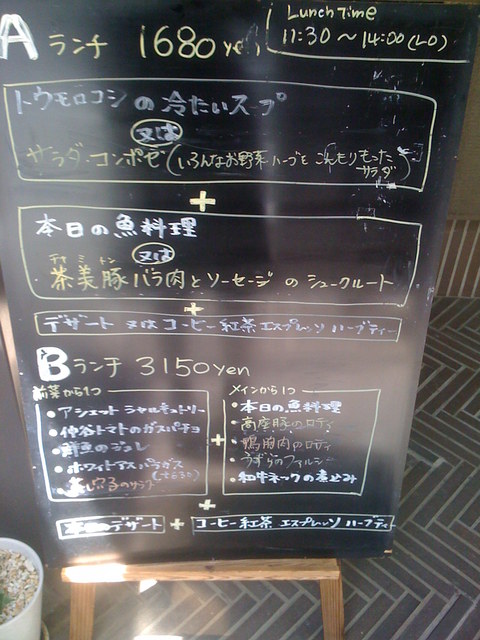 Lunch Time
11:30～14:00(LO)
Aランチ 1680yen
トウモロコシの冷たいスープ
又は
サラダ・コンポゼ(いろんなお野菜ハーブをこんもりもった
サラダ)
+
本日の魚料理
又は
チャミトン
茶美豚バラ肉とソーセージのシュークルート
+
デザート 又は コーヒー 紅茶 エスプレッソ ハーブティー
Bランチ 3150yen
前菜から1つ
・アシェット シャルキュトリー
・仲谷トマトのガスパチョ
・鮮魚のジュレ
・ホワイトアスパラガス
+
メインから1つ
・本日の魚料理
・高座豚のロティ
・鴨胸肉のロティ
・うずらのファルシ
・和牛ネックの煮込み
+
本日のデザート + コーヒー 紅茶 エスプレッソ ハーブティ